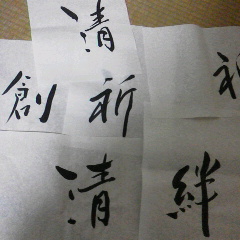 清
創 祈
清 絆